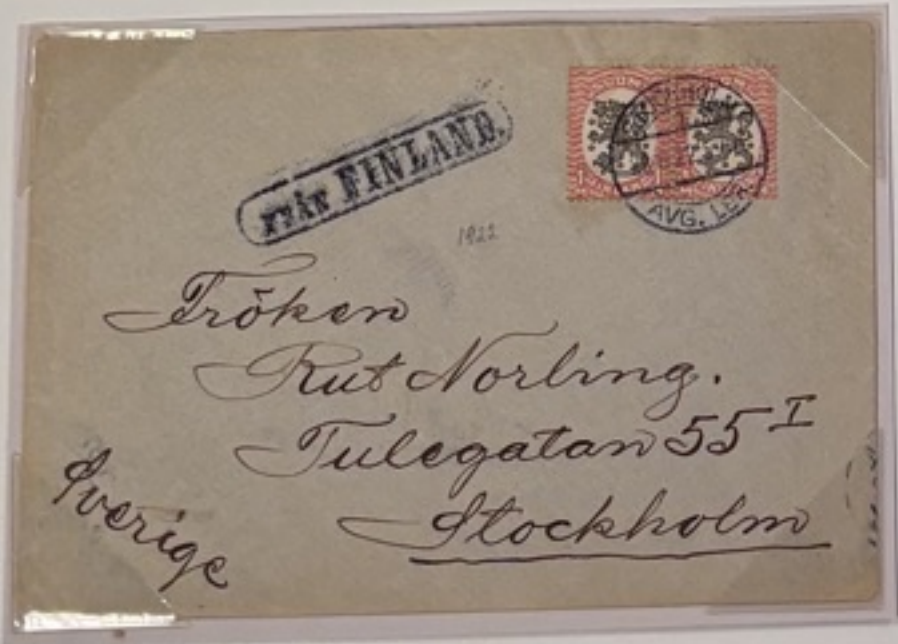 FRÅN FINLAND.
1
AVG. LBR.
1922
Fröken
Rut Norling.
Tulegatan 55 I
Stockholm
Sverige